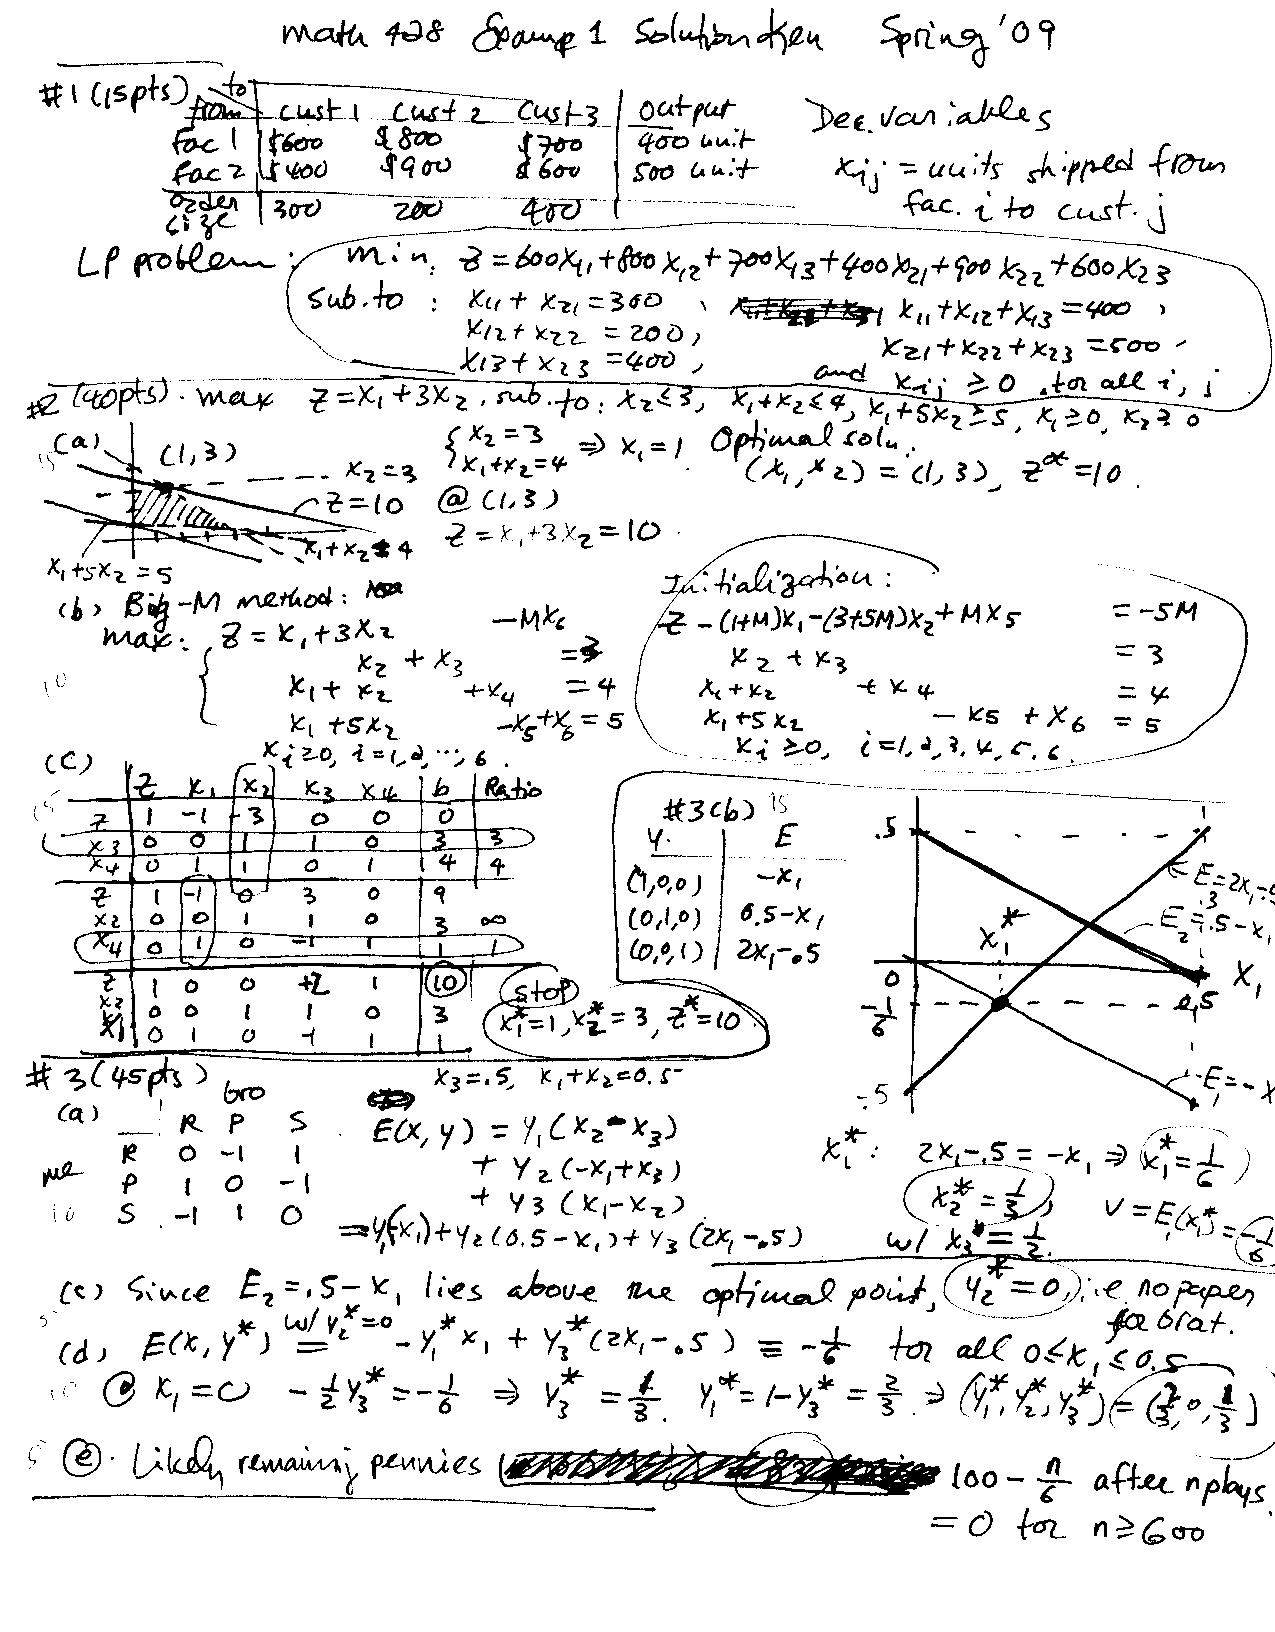 math 428 Exam 1 Solution Key Spring '09
#1 (15pts)
from to | Cust 1 Cust 2 Cust 3 | Output
Fac 1 | $600 $800 $700 | 400 unit
Fac 2 | $400 $900 $600 | 500 unit
Order size | 300 200 400
Dec. variables
xij = units shipped from
fac. i to cust. j
LP problem: min. Z = 600x11 + 800x12 + 700x13 + 400x21 + 900x22 + 600x23
sub. to: x11 + x21 = 300, x11 + x12 + x13 = 400,
x12 + x22 = 200, x21 + x22 + x23 = 500
x13 + x23 = 400, and xij ≥ 0 for all i, j
#2 (40pts). max Z = x1 + 3x2, sub. to: x2 ≤ 3, x1 + x2 ≤ 4, x1 + 5x2 ≥ 5, x1 ≥ 0, x2 ≥ 0
15 (a) (1,3)
x2 = 3
Z = 10
x1 + x2 = 4
x1 + 5x2 = 5
{ x2 = 3
x1 + x2 = 4 ⇒ x1 = 1 Optimal solu.
(x1, x2) = (1, 3), Z* = 10.
@ (1,3)
Z = x1 + 3x2 = 10
(b) Big-M method:
max: Z = x1 + 3x2 - Mx6
x2 + x3 = 3
10 x1 + x2 + x4 = 4
x1 + 5x2 - x5 + x6 = 5
xi ≥ 0, i = 1, 2, ..., 6.
Initialization:
Z - (1+M)x1 - (3+5M)x2 + Mx5 = -5M
x2 + x3 = 3
x1 + x2 + x4 = 4
x1 + 5x2 - x5 + x6 = 5
xi ≥ 0, i = 1, 2, 3, 4, 5, 6.
(c)
15
Z x1 x2 x3 x4 b Ratio
Z 1 -1 -3 0 0 0
x3 0 0 1 1 0 3 3
x4 0 1 1 0 1 4 4
Z 1 -1 0 3 0 9
x2 0 0 1 1 0 3 ∞
x4 0 1 0 -1 1 1 1
Z 1 0 0 +2 1 10 stop
x2 0 0 1 1 0 3
x1 0 1 0 -1 1 1
x1* = 1, x2* = 3, Z* = 10
#3(b) 15
y. | E
(1,0,0) | -x1
(0,1,0) | 0.5 - x1
(0,0,1) | 2x1 - .5
.5
0
-1/6
-.5
x1*
0.5
x1
E3 = 2x1 - .5
E2 = .5 - x1
E1 = -x
#3 (45pts)
x3 = .5, x1 + x2 = 0.5
(a) bro
R P S
R 0 -1 1
me P 1 0 -1
10 S -1 1 0
E(x, y) = y1(x2 - x3)
+ y2(-x1 + x3)
+ y3(x1 - x2)
= y1(-x1) + y2(0.5 - x1) + y3(2x1 - .5)
x1*: 2x1 - .5 = -x1 ⇒ x1* = 1/6
x2* = 1/3, v = E1(x1*) = -1/6
w/ x3* = 1/2.
(c) Since E2 = .5 - x1 lies above the optimal point, y2* = 0, i.e no paper
5 for brat.
(d) E(x, y*) w/ y2* = 0 = -y1* x1 + y3*(2x1 - .5) ≡ -1/6 for all 0 ≤ x1 ≤ 0.5
10 @ x1 = 0 -1/2 y3* = -1/6 ⇒ y3* = 1/3. y1* = 1 - y3* = 2/3 ⇒ (y1*, y2*, y3*) = (2/3, 0, 1/3)
5 (e). Likely remaining pennies 100 - n/6 after n plays.
= 0 for n ≥ 600